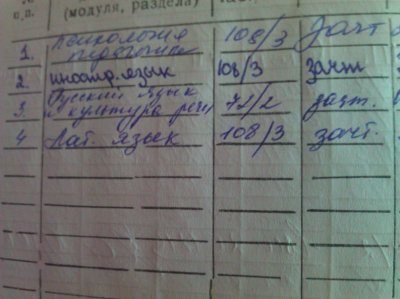 п.п. (модуля, раздела)
1. Психология педагогика 108/3 Зачт
2. иностр. язык 108/3 зачт
3. Русский язык и культура речи 72/2 зачт.
4 Лат. язык 108/3 зачт.